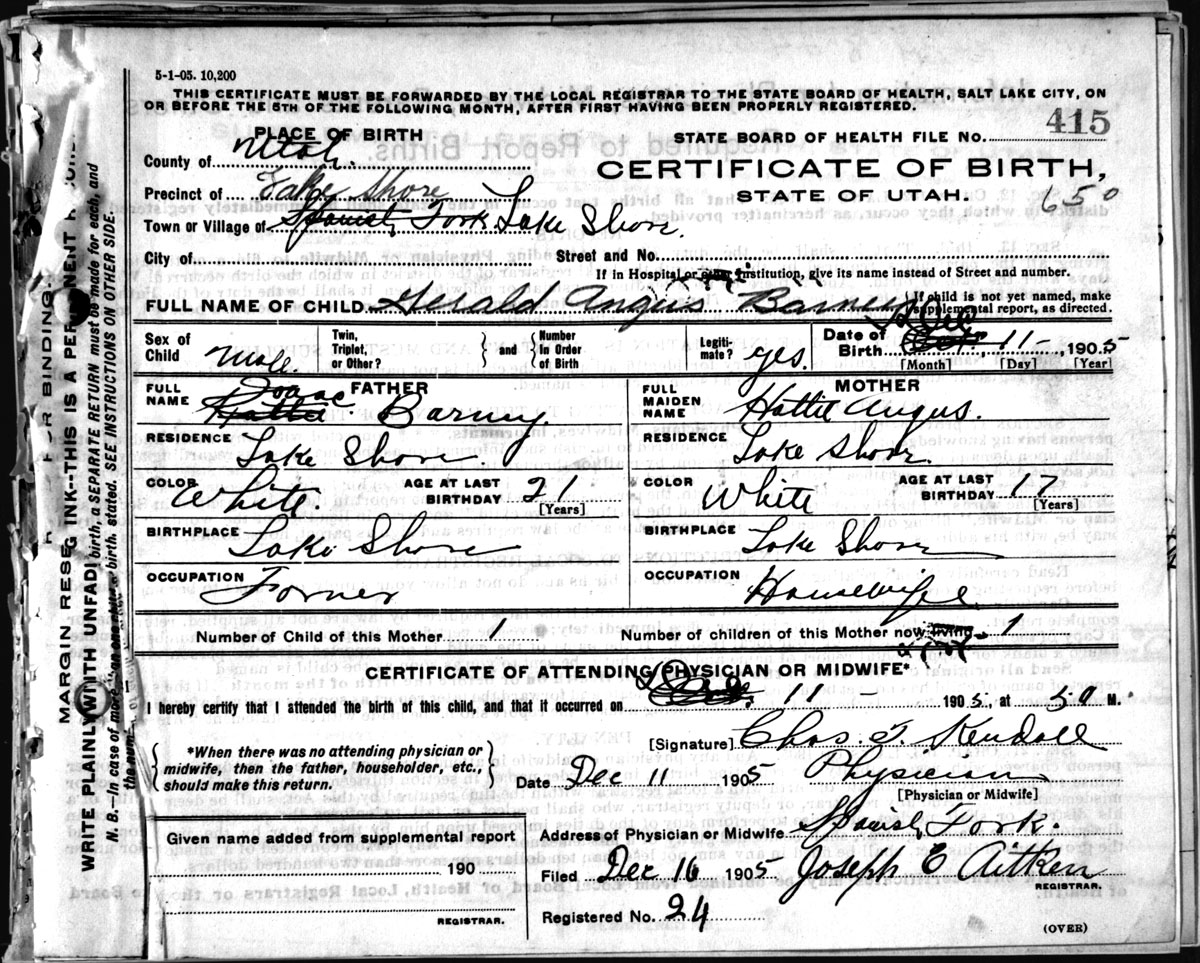 5-1-05. 10,200
THIS CERTIFICATE MUST BE FORWARDED BY THE LOCAL REGISTRAR TO THE STATE BOARD OF HEALTH, SALT LAKE CITY, ON
OR BEFORE THE 5TH OF THE FOLLOWING MONTH, AFTER FIRST HAVING BEEN PROPERLY REGISTERED.
PLACE OF BIRTH
STATE BOARD OF HEALTH FILE NO. 415
County of Utah.
CERTIFICATE OF BIRTH,
Precinct of Lake Shore
STATE OF UTAH.
650
Town or Village of Spanish Fork Lake Shore.
City of Street and No.
If in Hospital or other Institution, give its name instead of Street and number.
FULL NAME OF CHILD Herald Angus Barney
If child is not yet named, make supplemental report, as directed.
Sex of Child Male. Twin, Triplet, or Other? and Number In Order of Birth Legiti-mate? yes. Date of Birth Dec 11 1905
[Month] [Day] [Year]
FATHER
FULL NAME Isaac Barney.
RESIDENCE Lake Shore.
COLOR White. AGE AT LAST BIRTHDAY 21
[Years]
BIRTHPLACE Lake Shore
OCCUPATION Farmer
MOTHER
FULL MAIDEN NAME Hattie Angus.
RESIDENCE Lake Shore.
COLOR White AGE AT LAST BIRTHDAY 17
[Years]
BIRTHPLACE Lake Shore
OCCUPATION Housewife
Number of Child of this Mother 1 Number of children of this Mother now living 1
CERTIFICATE OF ATTENDING PHYSICIAN OR MIDWIFE*
I hereby certify that I attended the birth of this child, and that it occurred on 11 1905, at 50 M.
*When there was no attending physician or
midwife, then the father, householder, etc.,
should make this return.
[Signature] Chas. F. Kendall
Date Dec 11 1905 Physician
[Physician or Midwife]
Given name added from supplemental report
190
REGISTRAR.
Address of Physician or Midwife Spanish Fork.
Filed Dec 16 1905 Joseph E Aitken
REGISTRAR.
Registered No. 24
(OVER)
WRITE PLAINLY WITH UNFADING INK--THIS IS A PERMANENT
N. B. In case of more than one birth, a SEPARATE RETURN must be made for each, and
birth, stated. SEE INSTRUCTIONS ON OTHER SIDE.